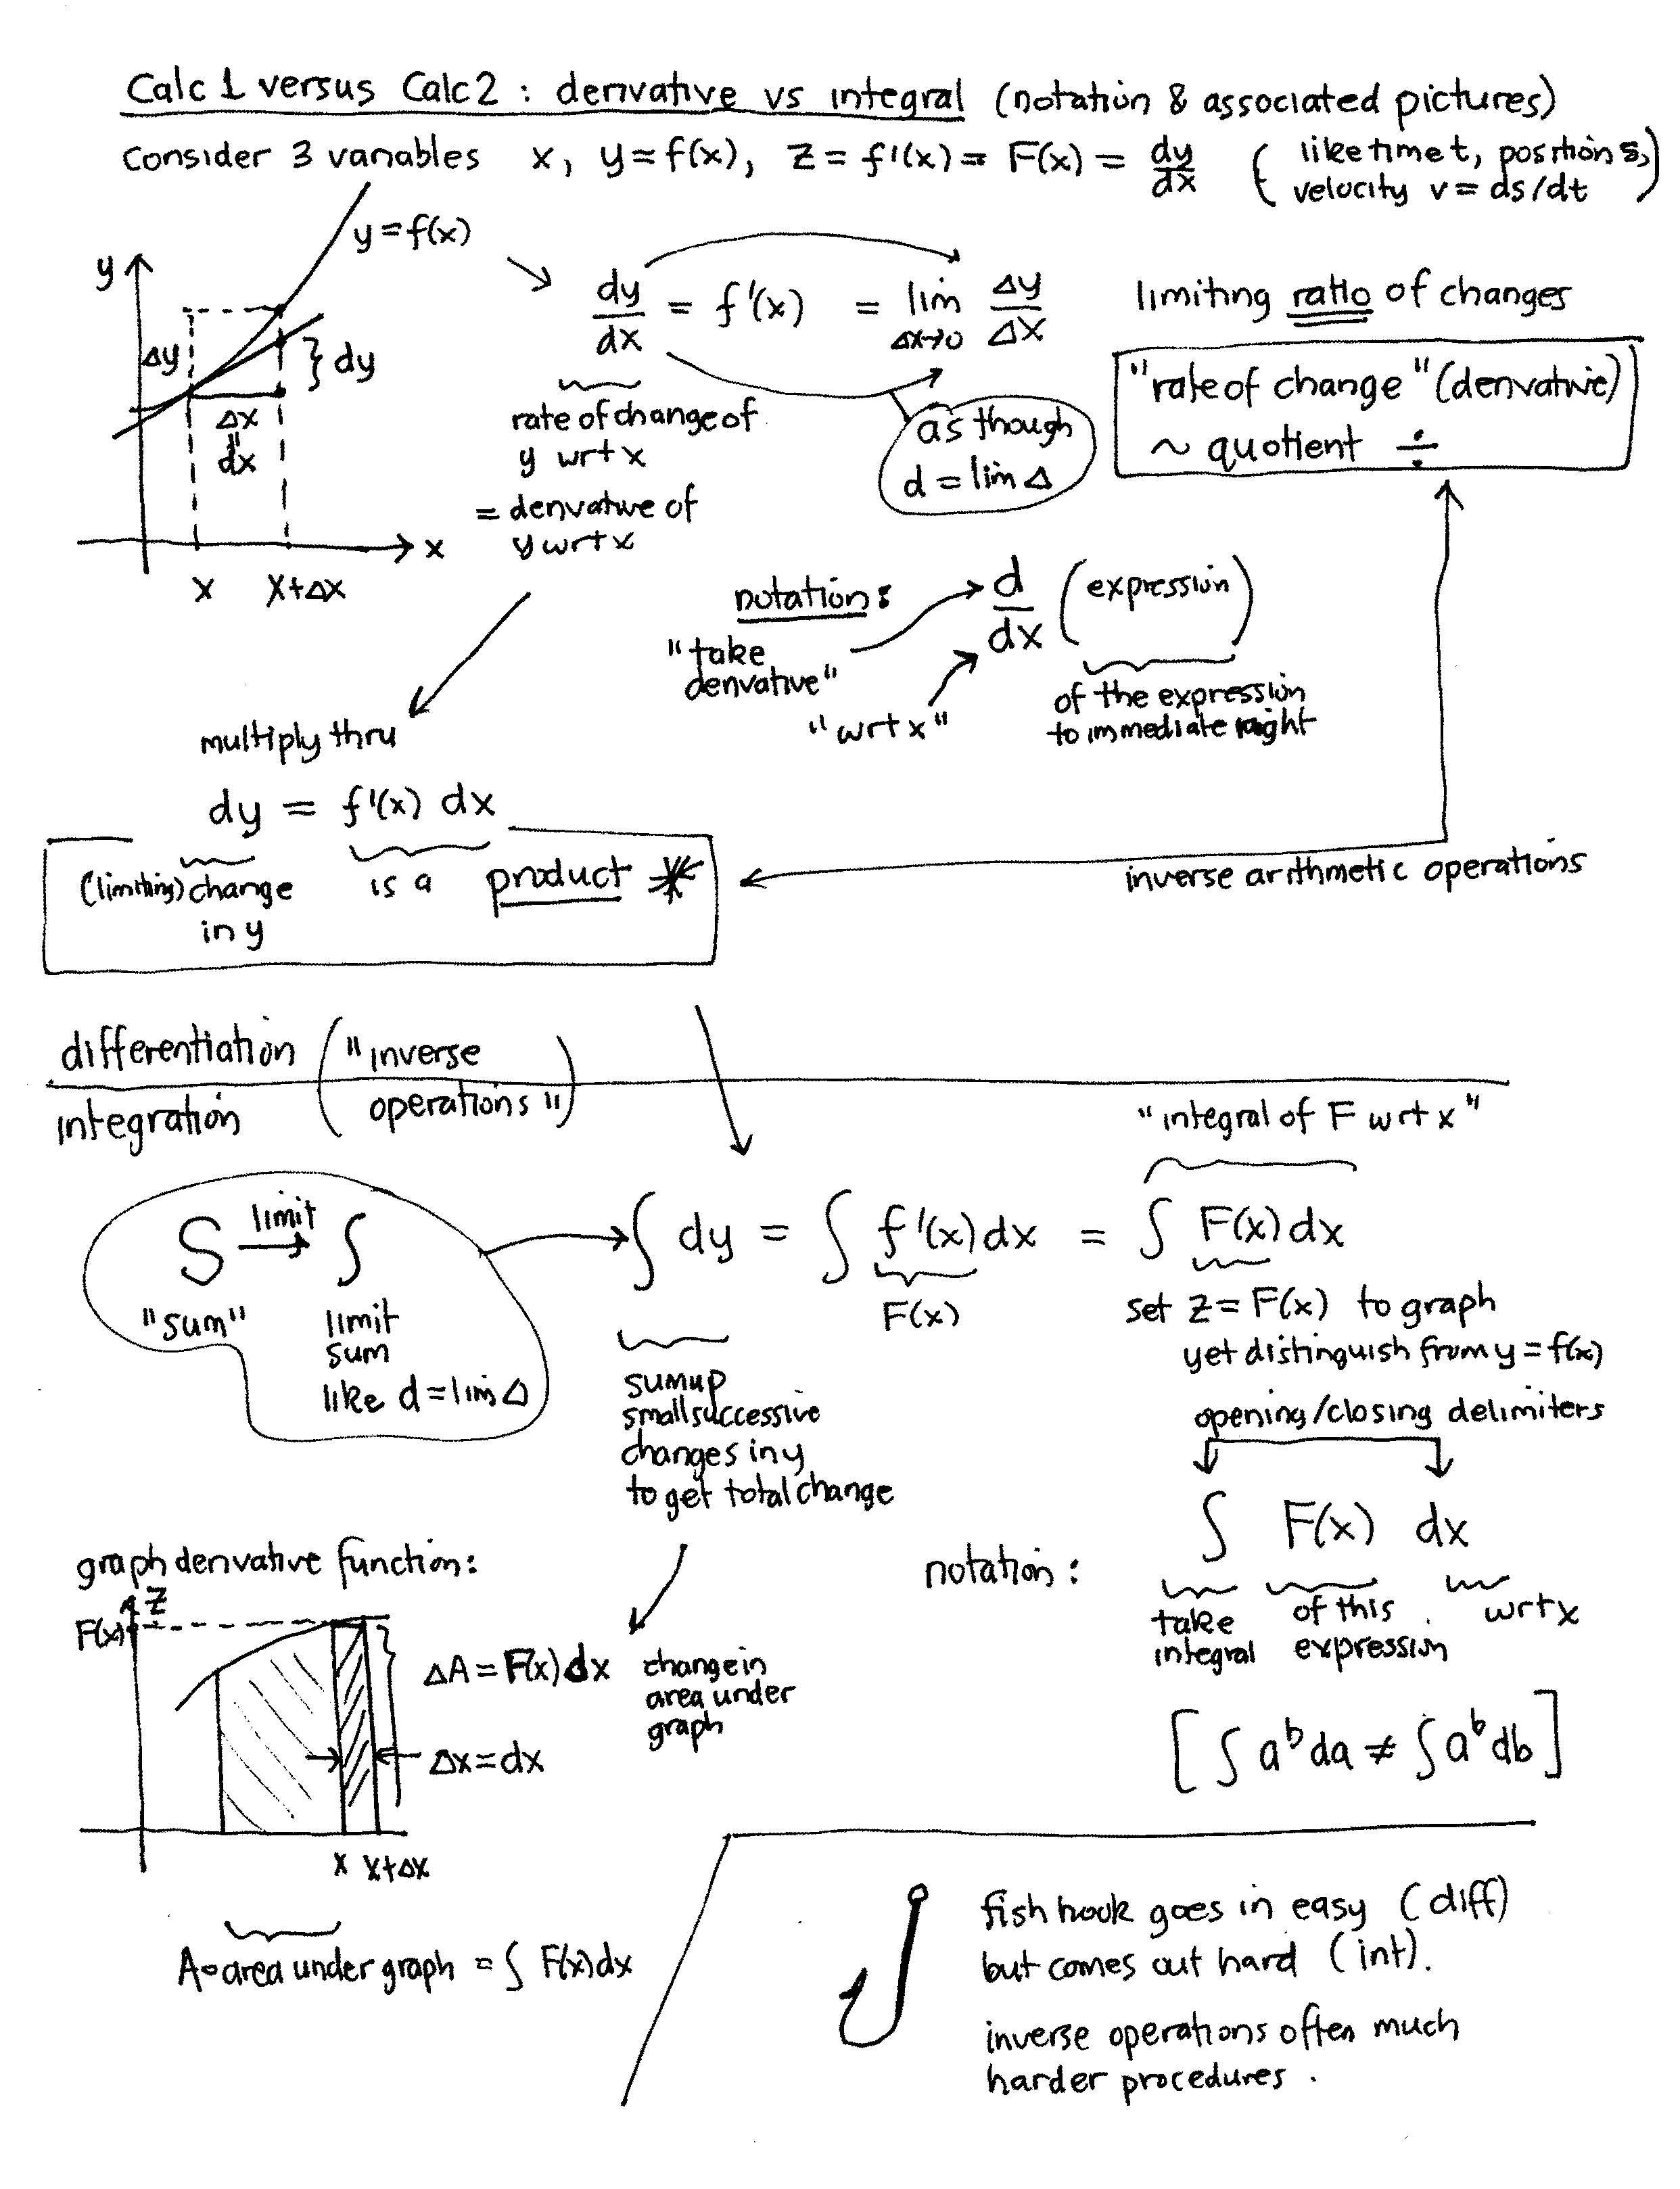 Calc 1 versus Calc 2 : derivative vs integral (notation & associated pictures)
consider 3 variables x, y = f(x), z = f'(x) = F(x) = dy/dx (like time t, position s, velocity v = ds/dt)
y = f(x)
y
Δy
} dy
Δx
"
dx
x
x x+Δx
dy/dx = f'(x) = lim Δx→0 Δy/Δx
limiting ratio of changes
rate of change of
y wrt x
= derivative of
y wrt x
as though
d = lim Δ
"rate of change" (derivative)
~ quotient ÷
notation:
d/dx (expression)
"take
derivative"
"wrt x"
of the expression
to immediate right
multiply thru
dy = f'(x) dx
(limiting) change
in y
is a product *
inverse arithmetic operations
differentiation
integration
("inverse
operations")
S limit → ∫
"sum"
limit
sum
like d = lim Δ
∫ dy = ∫ f'(x) dx = ∫ F(x) dx
F(x)
"integral of F wrt x"
set z = F(x) to graph
yet distinguish from y = f(x)
sum up
small successive
changes in y
to get total change
opening/closing delimiters
notation:
∫ F(x) dx
take
integral
of this
expression
wrt x
[∫ a^b da ≠ ∫ a^b db]
graph derivative function:
z
F(x)
ΔA = F(x) dx
change in
area under
graph
Δx = dx
x x+Δx
A = area under graph = ∫ F(x) dx
fish hook goes in easy (diff)
but comes out hard (int).
inverse operations often much
harder procedures.